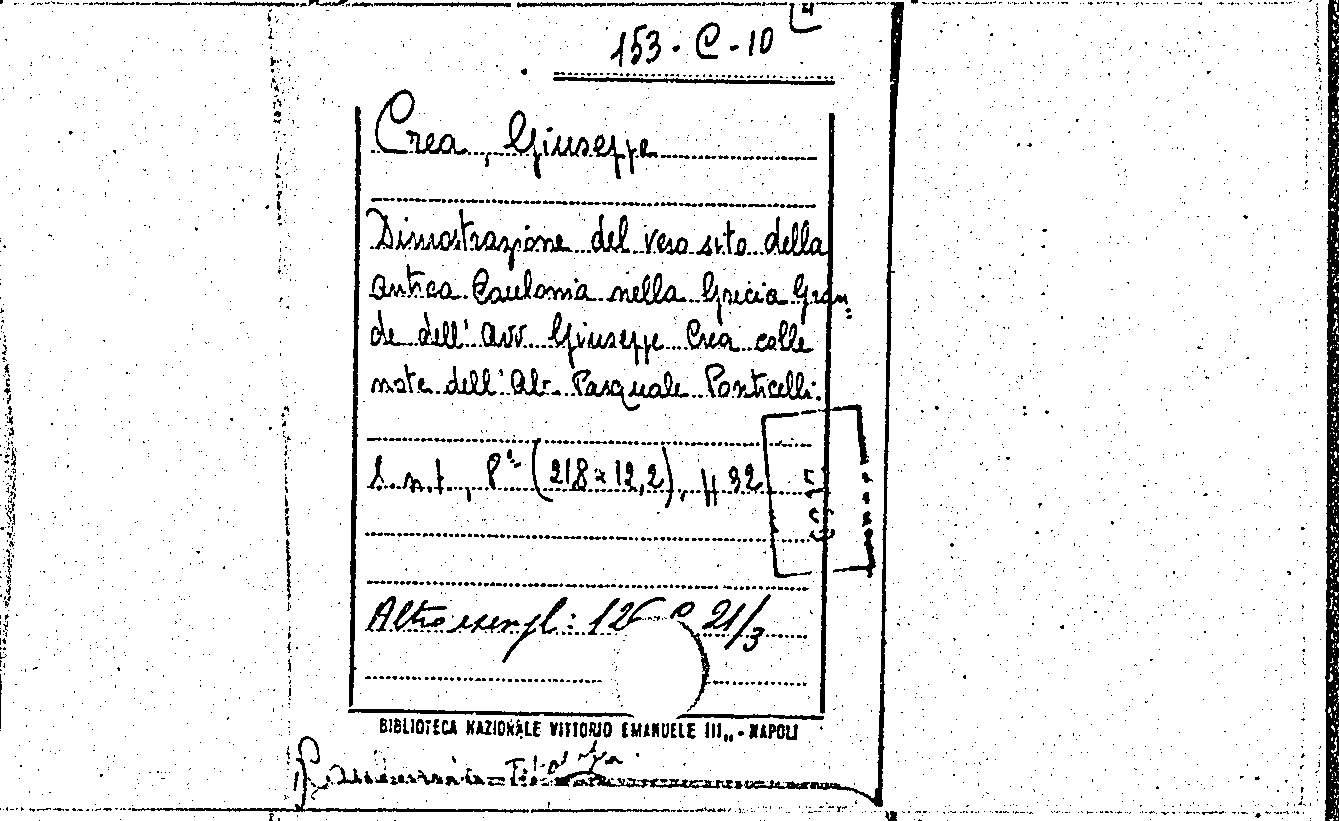 153 - C - 10
Crea, Giuseppe
Dimostrazione del vero sito della
antica Caulonia nella Grecia Gran„
de dell' avv Giuseppe Crea colle
note dell' Ab. Pasquale Ponticelli.
S. n. t., 8º (218 x 12,2), 32
Altro esempl: 126 21/3
BIBLIOTECA NAZIONALE VITTORIO EMANUELE III„ - NAPOLI